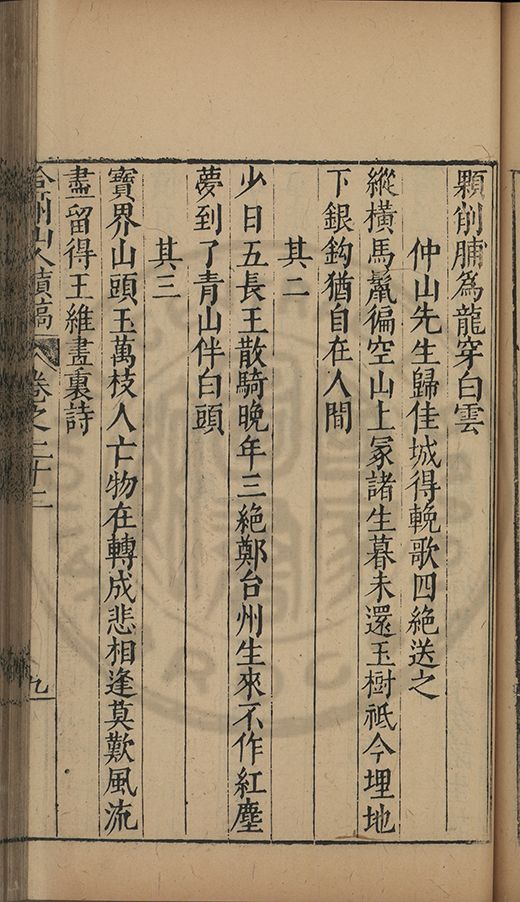 顆削脯為龍穿白雲
仲山先生歸佳城得輓歌四絶送之
縱橫馬鬛徧空山上冢諸生暮未還玉樹祗今埋地
下銀鈎猶自在人間
其二
少日五長王散騎晚年三絶鄭台州生來不作紅塵
夢到了青山伴白頭
其三
寶界山頭玉萬枝人亡物在轉成悲相逢莫歎風流
盡留得王維畫裏詩
山人續稿 卷之二十二 九